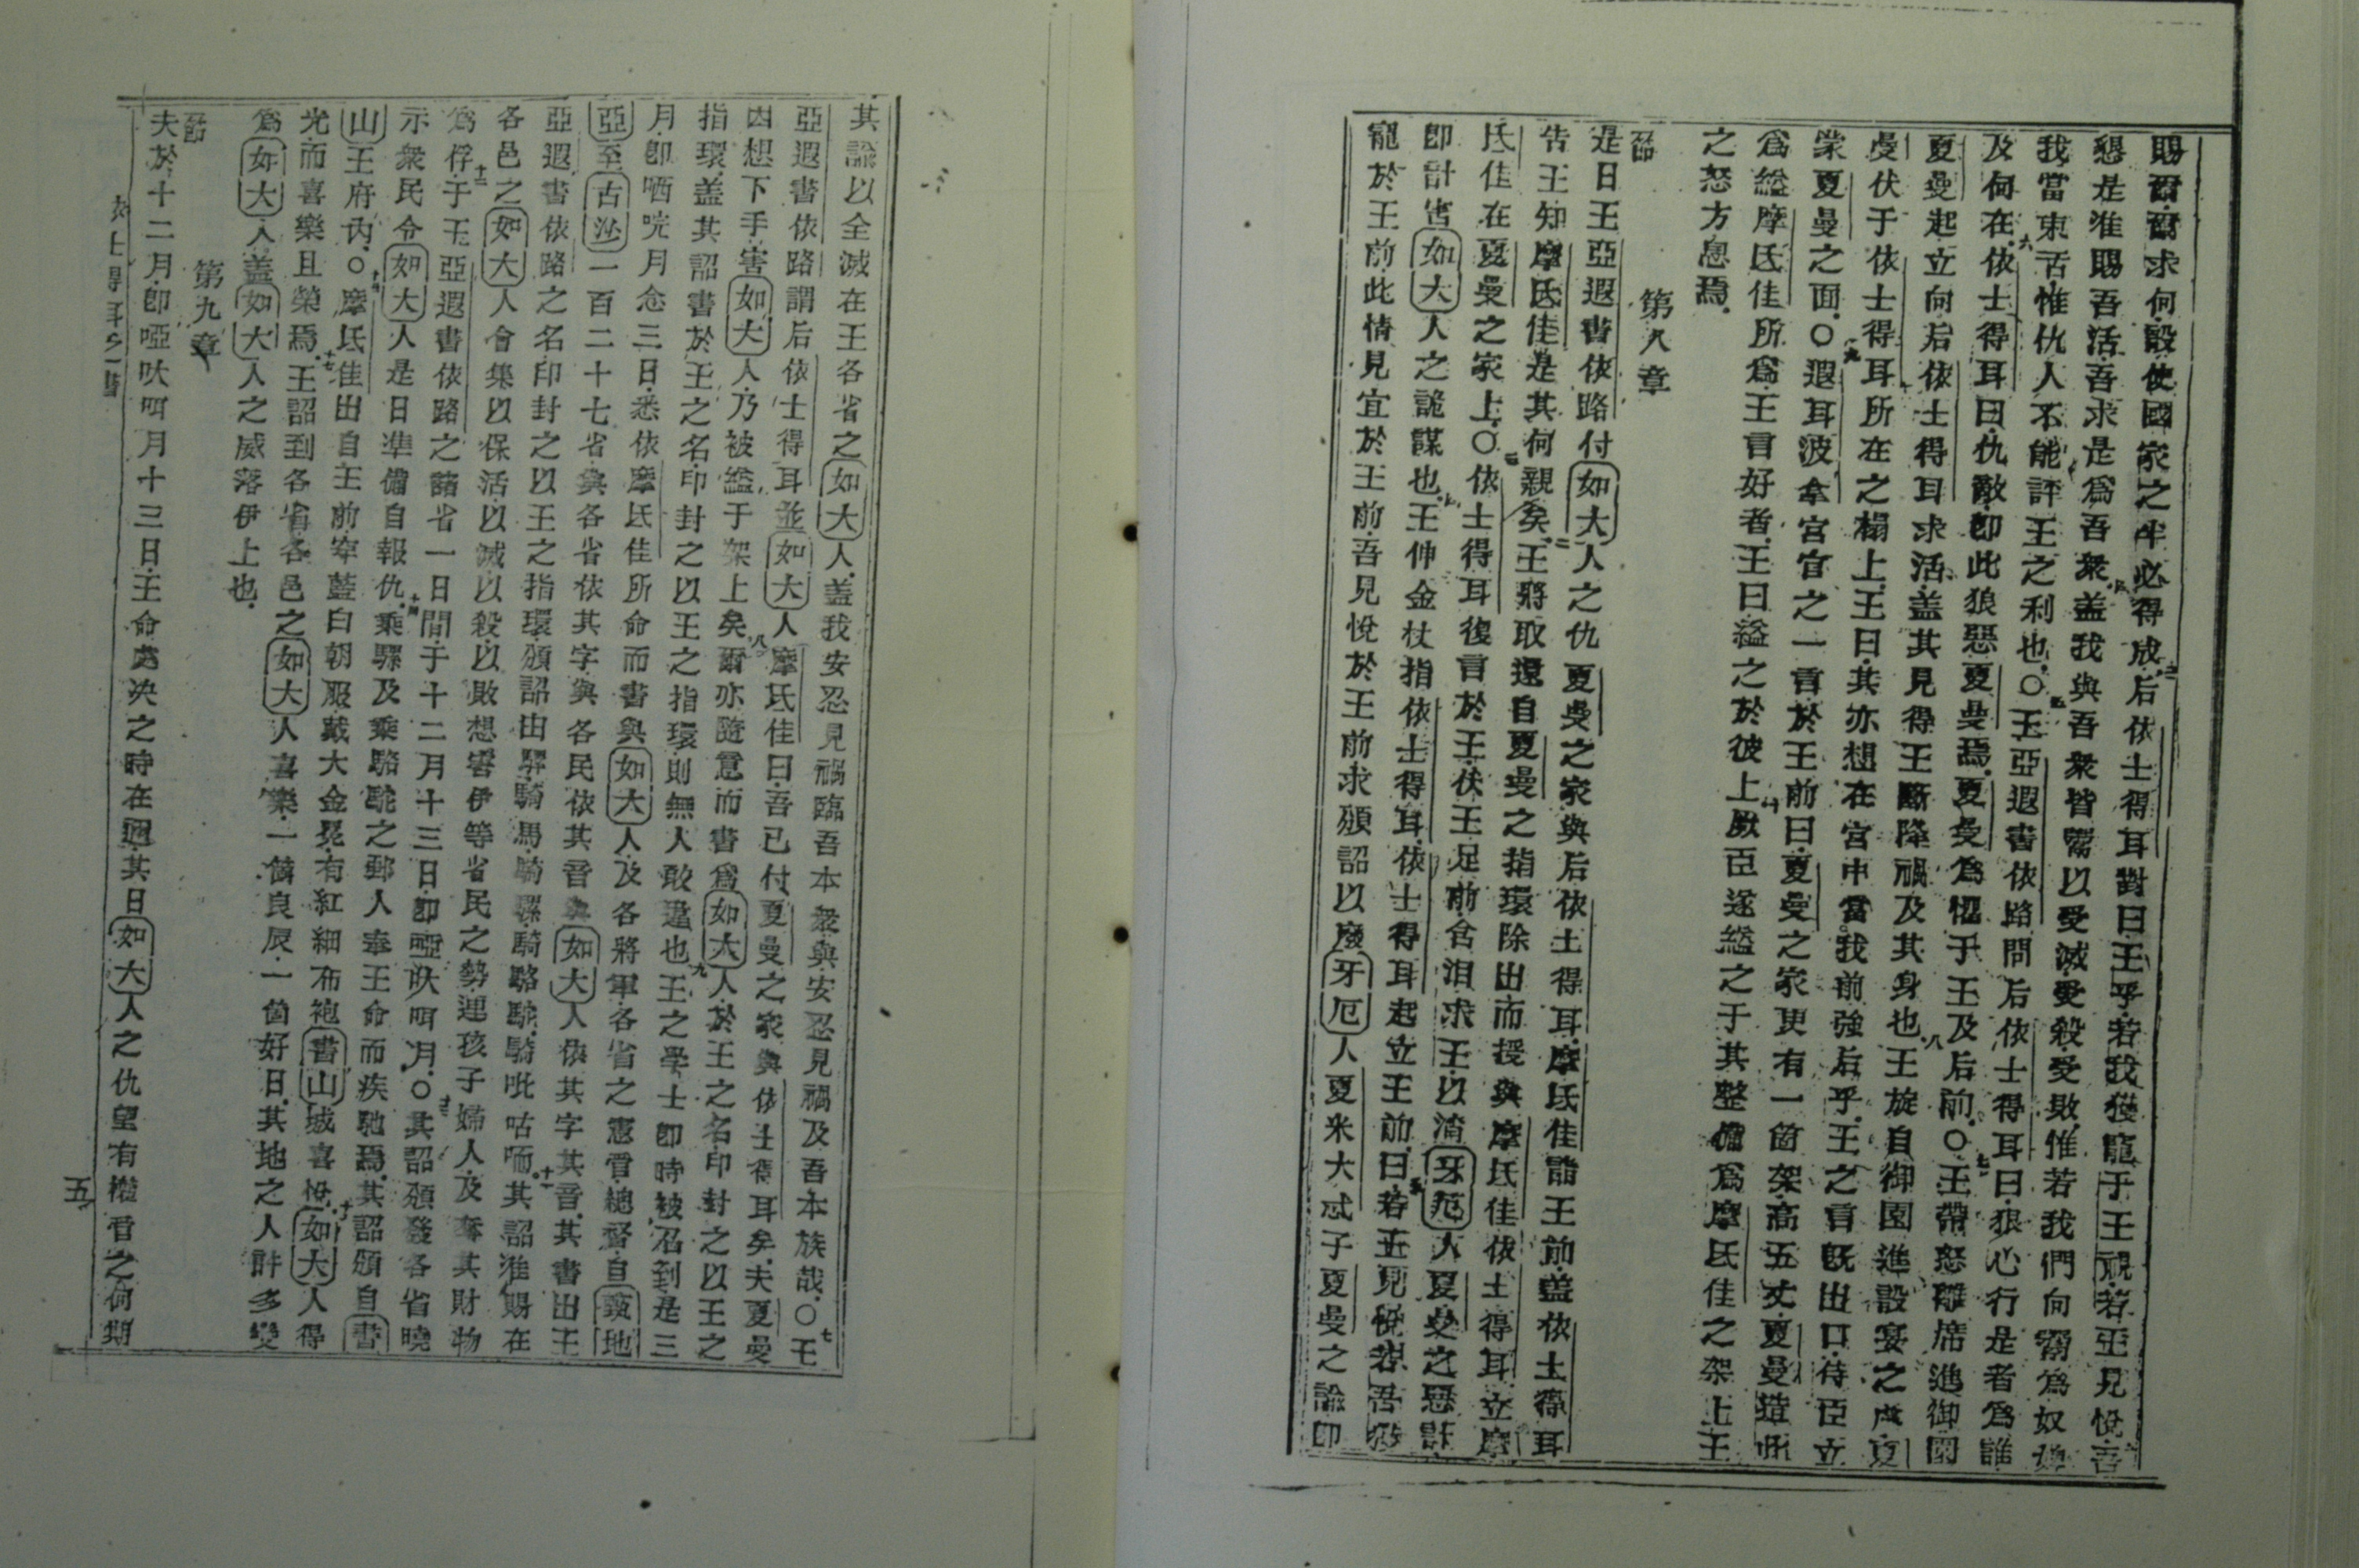 賜爾爾求何設使國家之半必得成二后依士得耳對曰王乎若我獲寵于王視若王見悅吾
懇是准賜吾活吾求是爲吾衆蓋我與吾衆皆鬻以受滅受殺受敗惟若我們向鬻爲奴婢
我當柬舌惟仇人不能評王之利也○王亞遐書依路問后依士得耳曰狠心行是者爲誰
及何在六依士得耳曰仇敵卽此狼惡夏曼焉夏曼爲懼于王及后前○七王帶怒離席進御園
夏曼起立向后依士得耳求活蓋其見得王斷降禍及其身也八王旋自御園進設宴之處夏
曼伏于依士得耳所在之榻上王曰其亦想在宮中當我前強后乎王之言旣出口待臣立
蒙夏曼之面○九遐耳波拿宮官之一言於王前曰夏曼之家更有一箇架高五丈夏曼造此
爲縊摩氐佳所爲王言好者王曰縊之於彼上十厥臣遂縊之于其整備爲摩氐佳之架上王
之怒方息焉
第八章
是日王亞遐書依路付如大人之仇夏曼之家與后依士得耳摩氐佳詣王前蓋依士得耳
告王知摩氐佳是其何親矣二王將取還自夏曼之指環除出而授與摩氐佳依士得耳立摩
氐佳在夏曼之家上○三依士得耳復言於王伏王足前含泪求王以消牙厄人夏曼之惡計
卽計害如大人之詭謀也四王伸金杖指依士得耳依士得耳起立王前五曰若王見悅若吾獲
寵於王前此情見宜於王前吾見悅於王前求頒詔以廢牙厄人夏米大忒子夏曼之諭卽
其諭以全滅在王各省之如大人蓋我安忍見禍臨吾本衆與安忍見禍及吾本族哉○七王
亞遐書依路謂后依士得耳並如大人摩氐佳曰吾已付夏曼之家與依士得耳矣夫夏曼
因想下手害如大人乃被縊于架上矣八爾亦隨意而書爲如大人於王之名印封之以王之
指環蓋其詔書於王之名印封之以王之指環則無人敢違也九王之學士卽時被召到是三
月卽哂㖌月念三日悉依摩氐佳所命而書與如大人及各將軍各省之憲官總督自
亞至古一百二十七省與各省依其字與各民依其音與如大人依其字其音其書出王
亞遐書依路之名印封之以王之指環頒詔由驛騎馬騎騾騎駱駝騎吡咕㖠十一其詔准賜在
各邑之如大人會集以保活以滅以殺以敗想害伊等省民之勢連孩子婦人及奪其財物
爲俘十二于王亞遐書依路之諸省一日間于十二月十三日卽啞吠呵月○十三其詔頒發各省曉
示衆民令如大人是日準備自報仇十四乘騾及乘駱駝之郵人奉王命而疾馳焉其詔頒自書
山王府內○十五摩氐佳出自王前穿藍白朝服戴大金冕有紅細布袍書山城喜悅十六如大人得
光而喜樂且榮焉十七王詔到各省各邑之如大人喜樂一個良辰一箇好日其地之人許多變
爲如大人蓋如大人之威落伊上也
第九章
夫於十二月卽啞吠呵月十三日王命處决之時在邇其日如大人之仇望有權管之何期
依士得耳之書
五